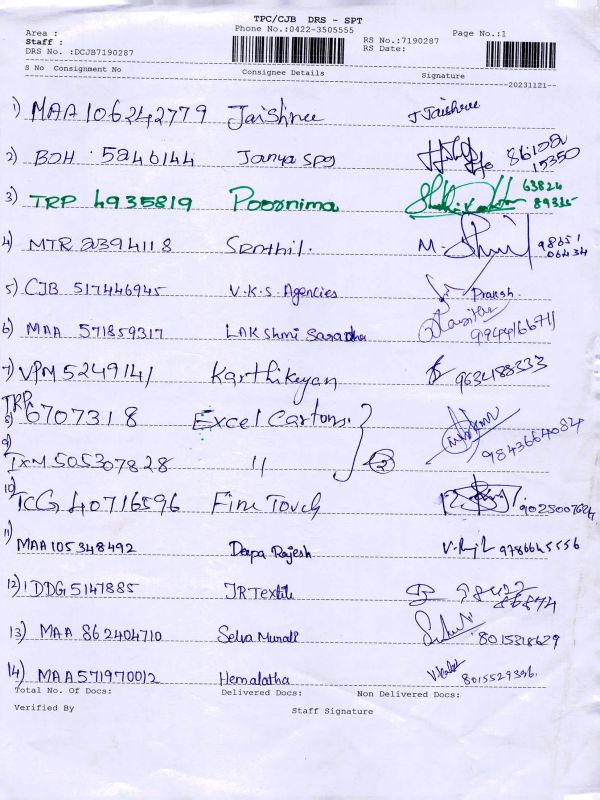 TPC/CJB DRS - SPT
Area :
Phone No.:0422-3505555
Page No.:1
Staff :
RS No.:7190287
DRS No. :DCJB7190287
RS Date:
S No Consignment No Consignee Details Signature
20231121
1) MAA 106242779 Jaishree J Jaishree
2) BOH 5246144 Janya Spg 86102 15350
3) TRP 4935819 Poornima 63824 89315
4) MTR 2394118 Senthil. M. 98651 06434
5) CJB 517446945 V.K.S. Agencies Prakash.
6) MAA 571859317 LAKshmi Saradha
7) VPM 5249141 Karthikeyan 9634188333
8) TRP 6707318 Excel Cartons. 9843664084
9) IXM 505307828 " 2
10) TCG 40716596 Fine Touch 9025007624
11) MAA 105348492 Deepa Rajesh 9786645556
12) DDG 5147885 JR Textile
13) MAA 862404710 Selva Murali 8015318629
14) MAA 571970012 Hemalatha 8015529396.
Total No. Of Docs: Delivered Docs: Non Delivered Docs:
Verified By Staff Signature